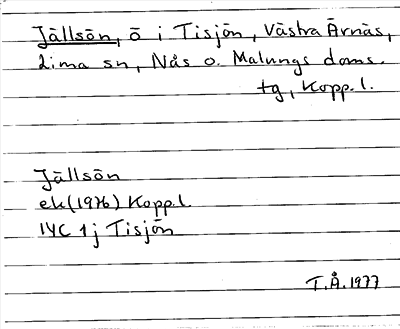 Jällsön, ö i Tisjön, Västra Ärnäs,
Lima sn, Nås o. Malungs doms.
tg, Kopp. l.
Jällsön
ek (1976) Kopp.l.
14C 1j Tisjön
T.Å. 1977